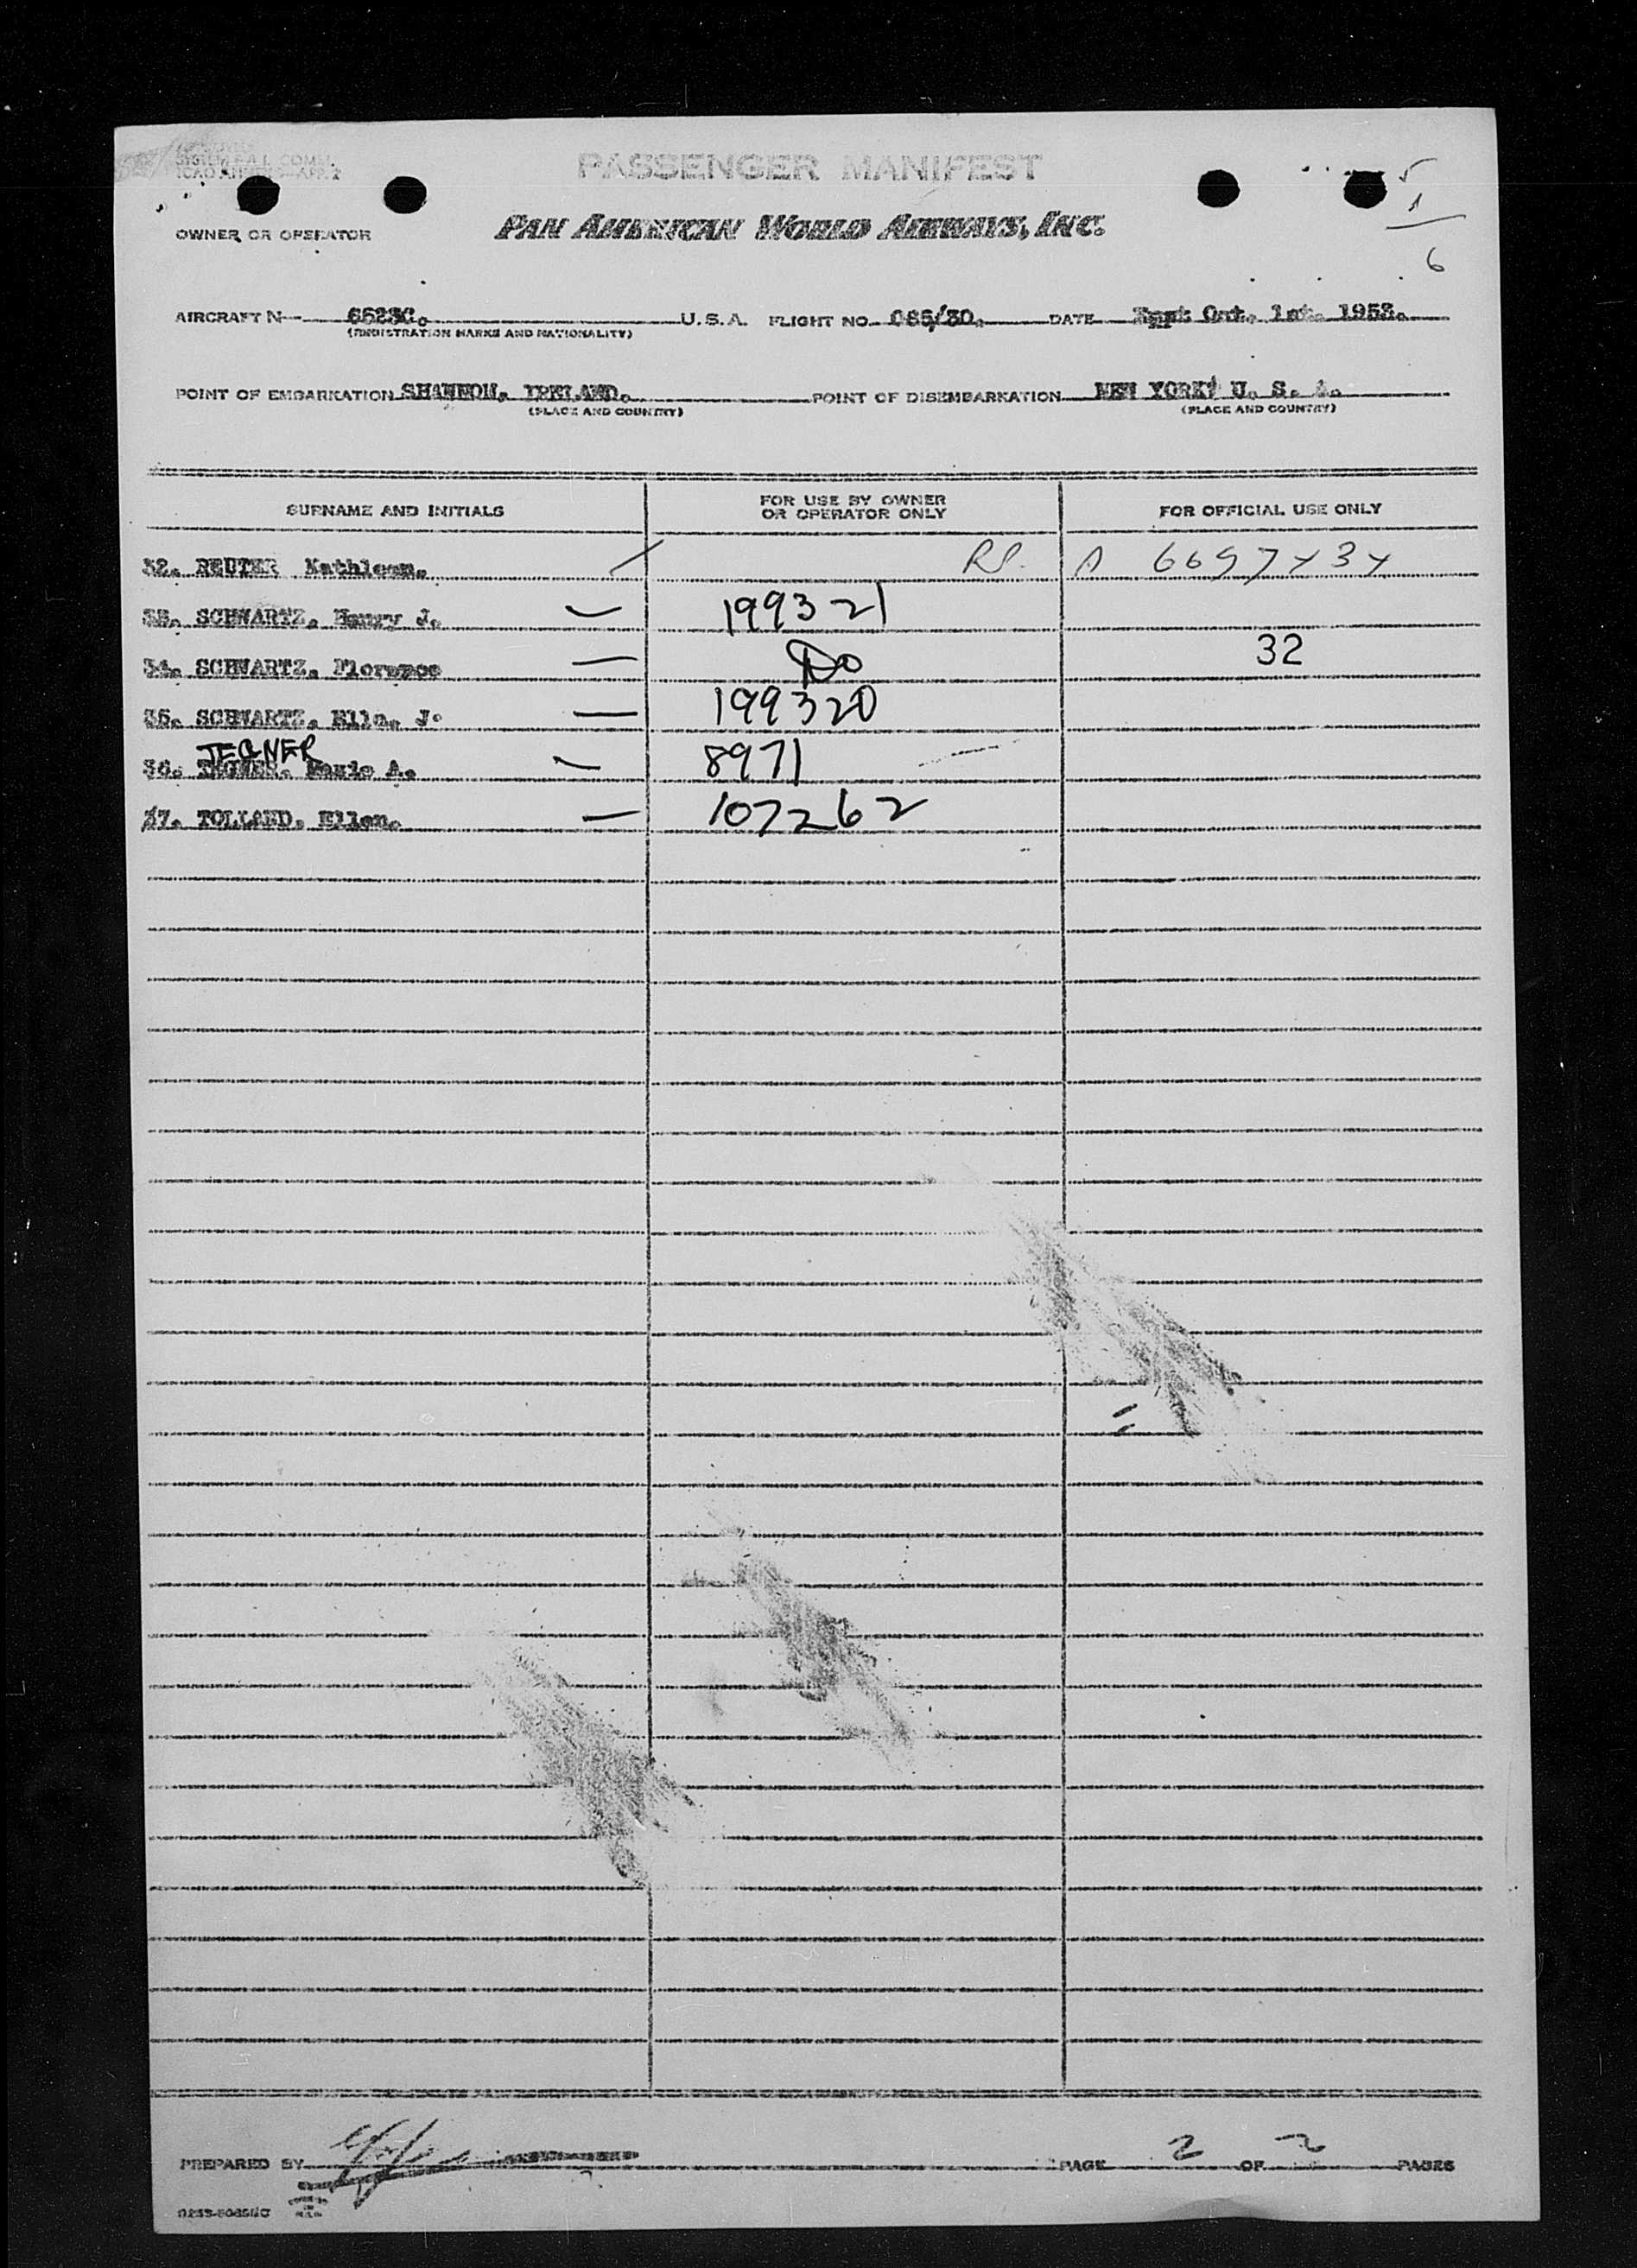 PASSENGER MANIFEST
PAN AMERICAN WORLD AIRWAYS, INC.
5
1
6
OWNER OR OPERATOR
AIRCRAFT N 6523C. U.S.A. FLIGHT NO. 085/30. DATE Oct. 1st. 1953.
(REGISTRATION MARKS AND NATIONALITY)
POINT OF EMBARKATION SHANNON, IRELAND. POINT OF DISEMBARKATION NEW YORK, U. S. A.
(PLACE AND COUNTRY) (PLACE AND COUNTRY)
SURNAME AND INITIALS FOR USE BY OWNER OR OPERATOR ONLY FOR OFFICIAL USE ONLY
32. REUTER Kathleen. A 6697434
33. SCHWARTZ, Henry J. 199321
34. SCHWARTZ, Florence Do 32
35. SCHWARTZ, Ella. J. 199320
TEGNER
36. TEGNER. A. 8971
37. TOLLAND, Ellen. 107262
PREPARED BY PAGE 2 OF 2 PAGES